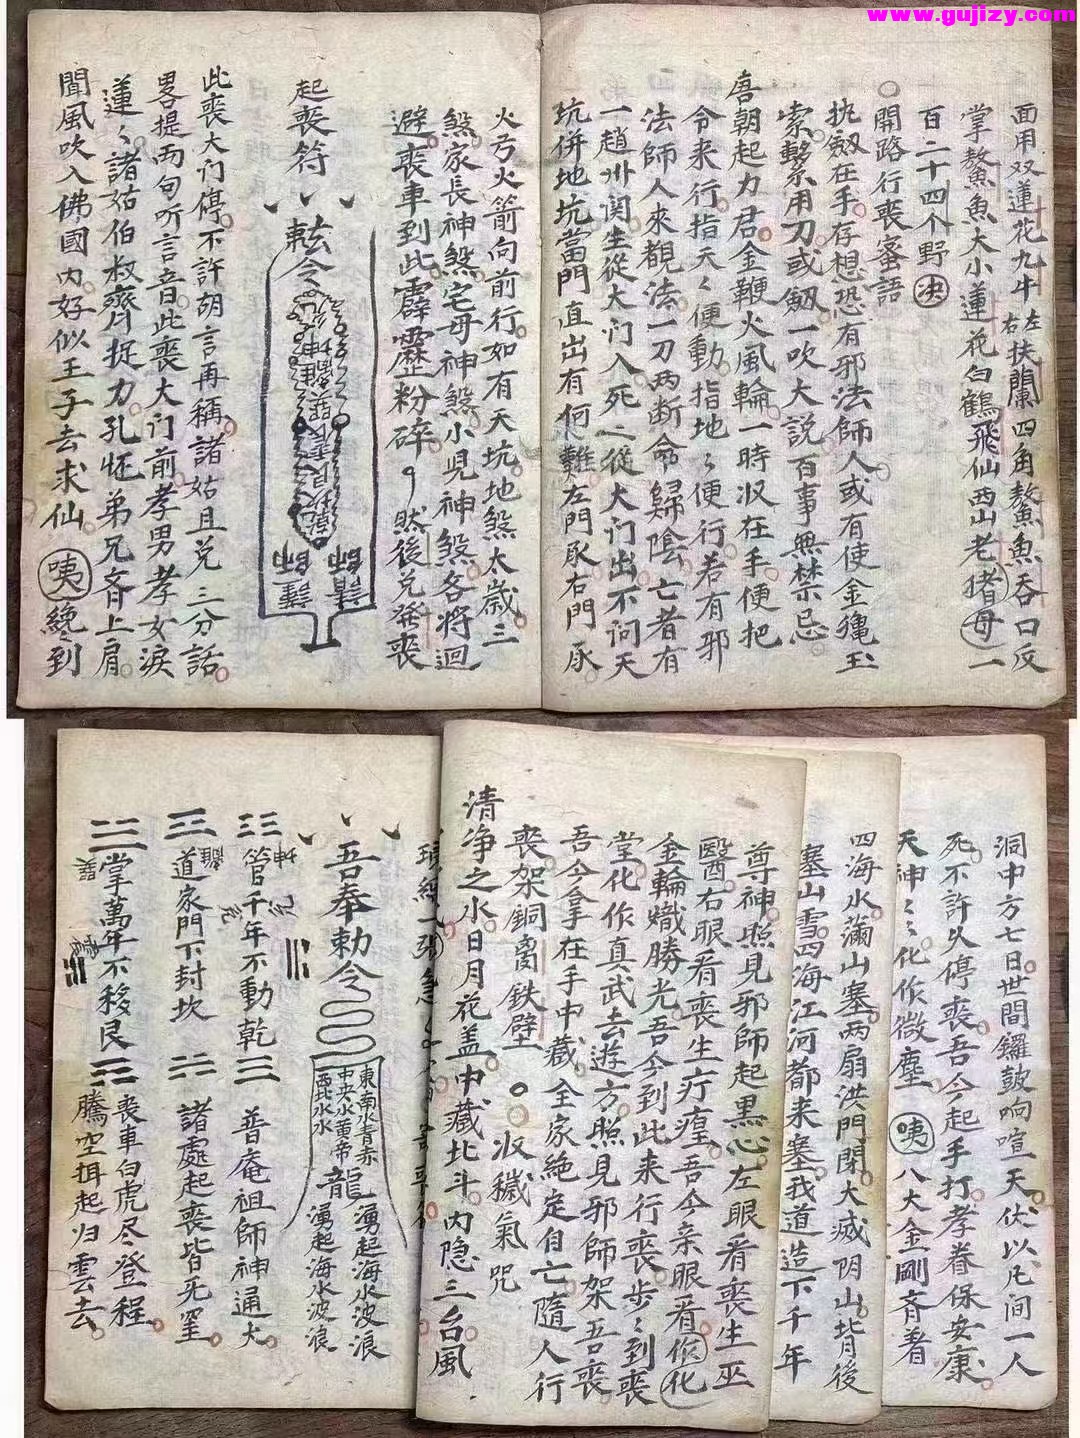 www.gujizy.com
面用双蓮花九牛左右扶蘭四角鰲魚吞口反
掌鰲魚大小蓮花白鶴飛仙西山老猪母一
百二十四个野決
○開路行喪蜜語
执劔在手存想恐有邪法師人或有使金㨯玉
索繫用刀或劔一吹大説百事無禁忌
唐朝起力君金鞭火風輪一時收在手便把
令来行指天〻便動指地〻便行若有邪
法師人來覩法一刀两断命歸陰亡者有
一趙州関生從大门入死〻從大门出不问天
坑併地坑當門直出有何難左門承右門承
火弓火箭向前行如有天坑地煞太歲三
煞家長神煞宅母神煞小児神煞各將迴
避喪車到此霹靂粉碎 然後兑発喪
起喪符
令
此喪大门停不許胡言再稱諸姑且兑三分話
畧提両句听言音此喪大门前孝男孝女淚
蓮〻諸姑伯叔齊捉力孔怀弟兄斉上肩
聞風吹入佛國内好似王子去求仙咦繞到
洞中方七日世間鑼鼓响喧天伏以凡间一人
死不許久停喪吾今起手打孝眷保安康
天神〻化作微塵咦八大金剛斉着
四海水滿山塞两扇洪門閉大滅阴山背後
塞山雪四海江河都来塞我道造下千年
尊神照見邪師起黒心左眼看喪生巫
醫右眼看喪生疔㾮吾今亲眼看作化
金輪熾勝光吾今到此来行喪步〻到喪
堂化作真武去遊方照見邪師架吾喪
吾今拿在手中藏全家絶定自亡隨人行
喪架銅啚鉄壁 ○收穢氣咒
清净之水日月花盖中藏北斗内隐三台風
吾奉勅令
東南水青赤
中央水黄帝
西北水水
龍
湧起海水波浪
湧起海水波浪
管千年不動乾 普庵祖師神通大
道家門下封坎 諸處起喪皆无罣
掌萬年不移艮 喪車白虎尽登程
騰空揖起归雲去